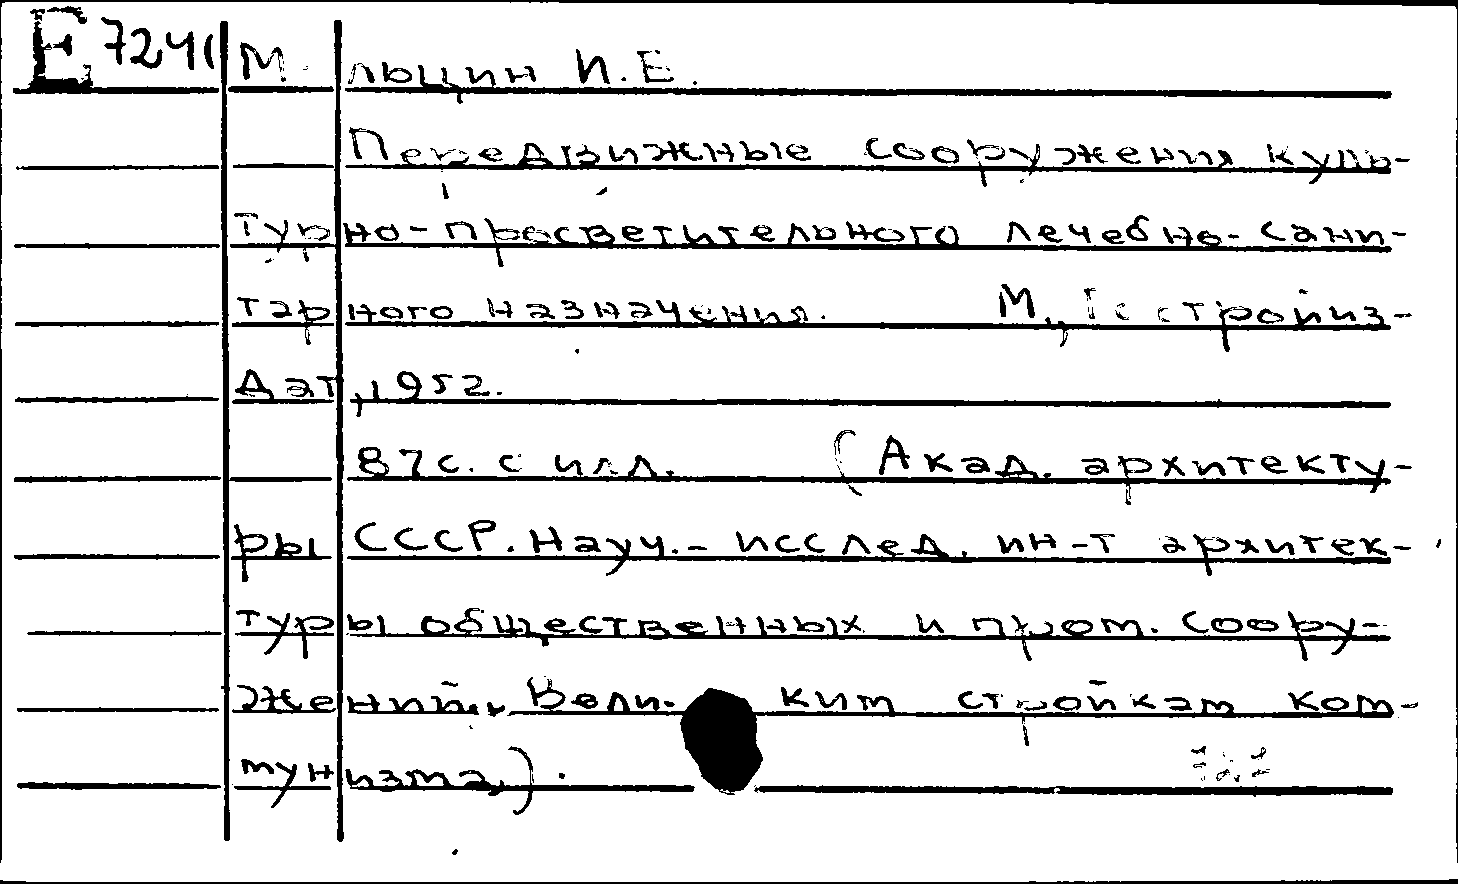 Е 7241 М. льцин И.Е.
Передвижные сооружения куль-
турно-просветительного лечебно-сани-
тарного назначения. М., Госстройиз-
дат, 1952.
87с. с илл. (Акад. архитекту-
ры СССР. Науч.-исслед. ин-т архитек-
туры общественных и пром. соору-
жений. Вели. ким стройкам ком-
мунизма.).